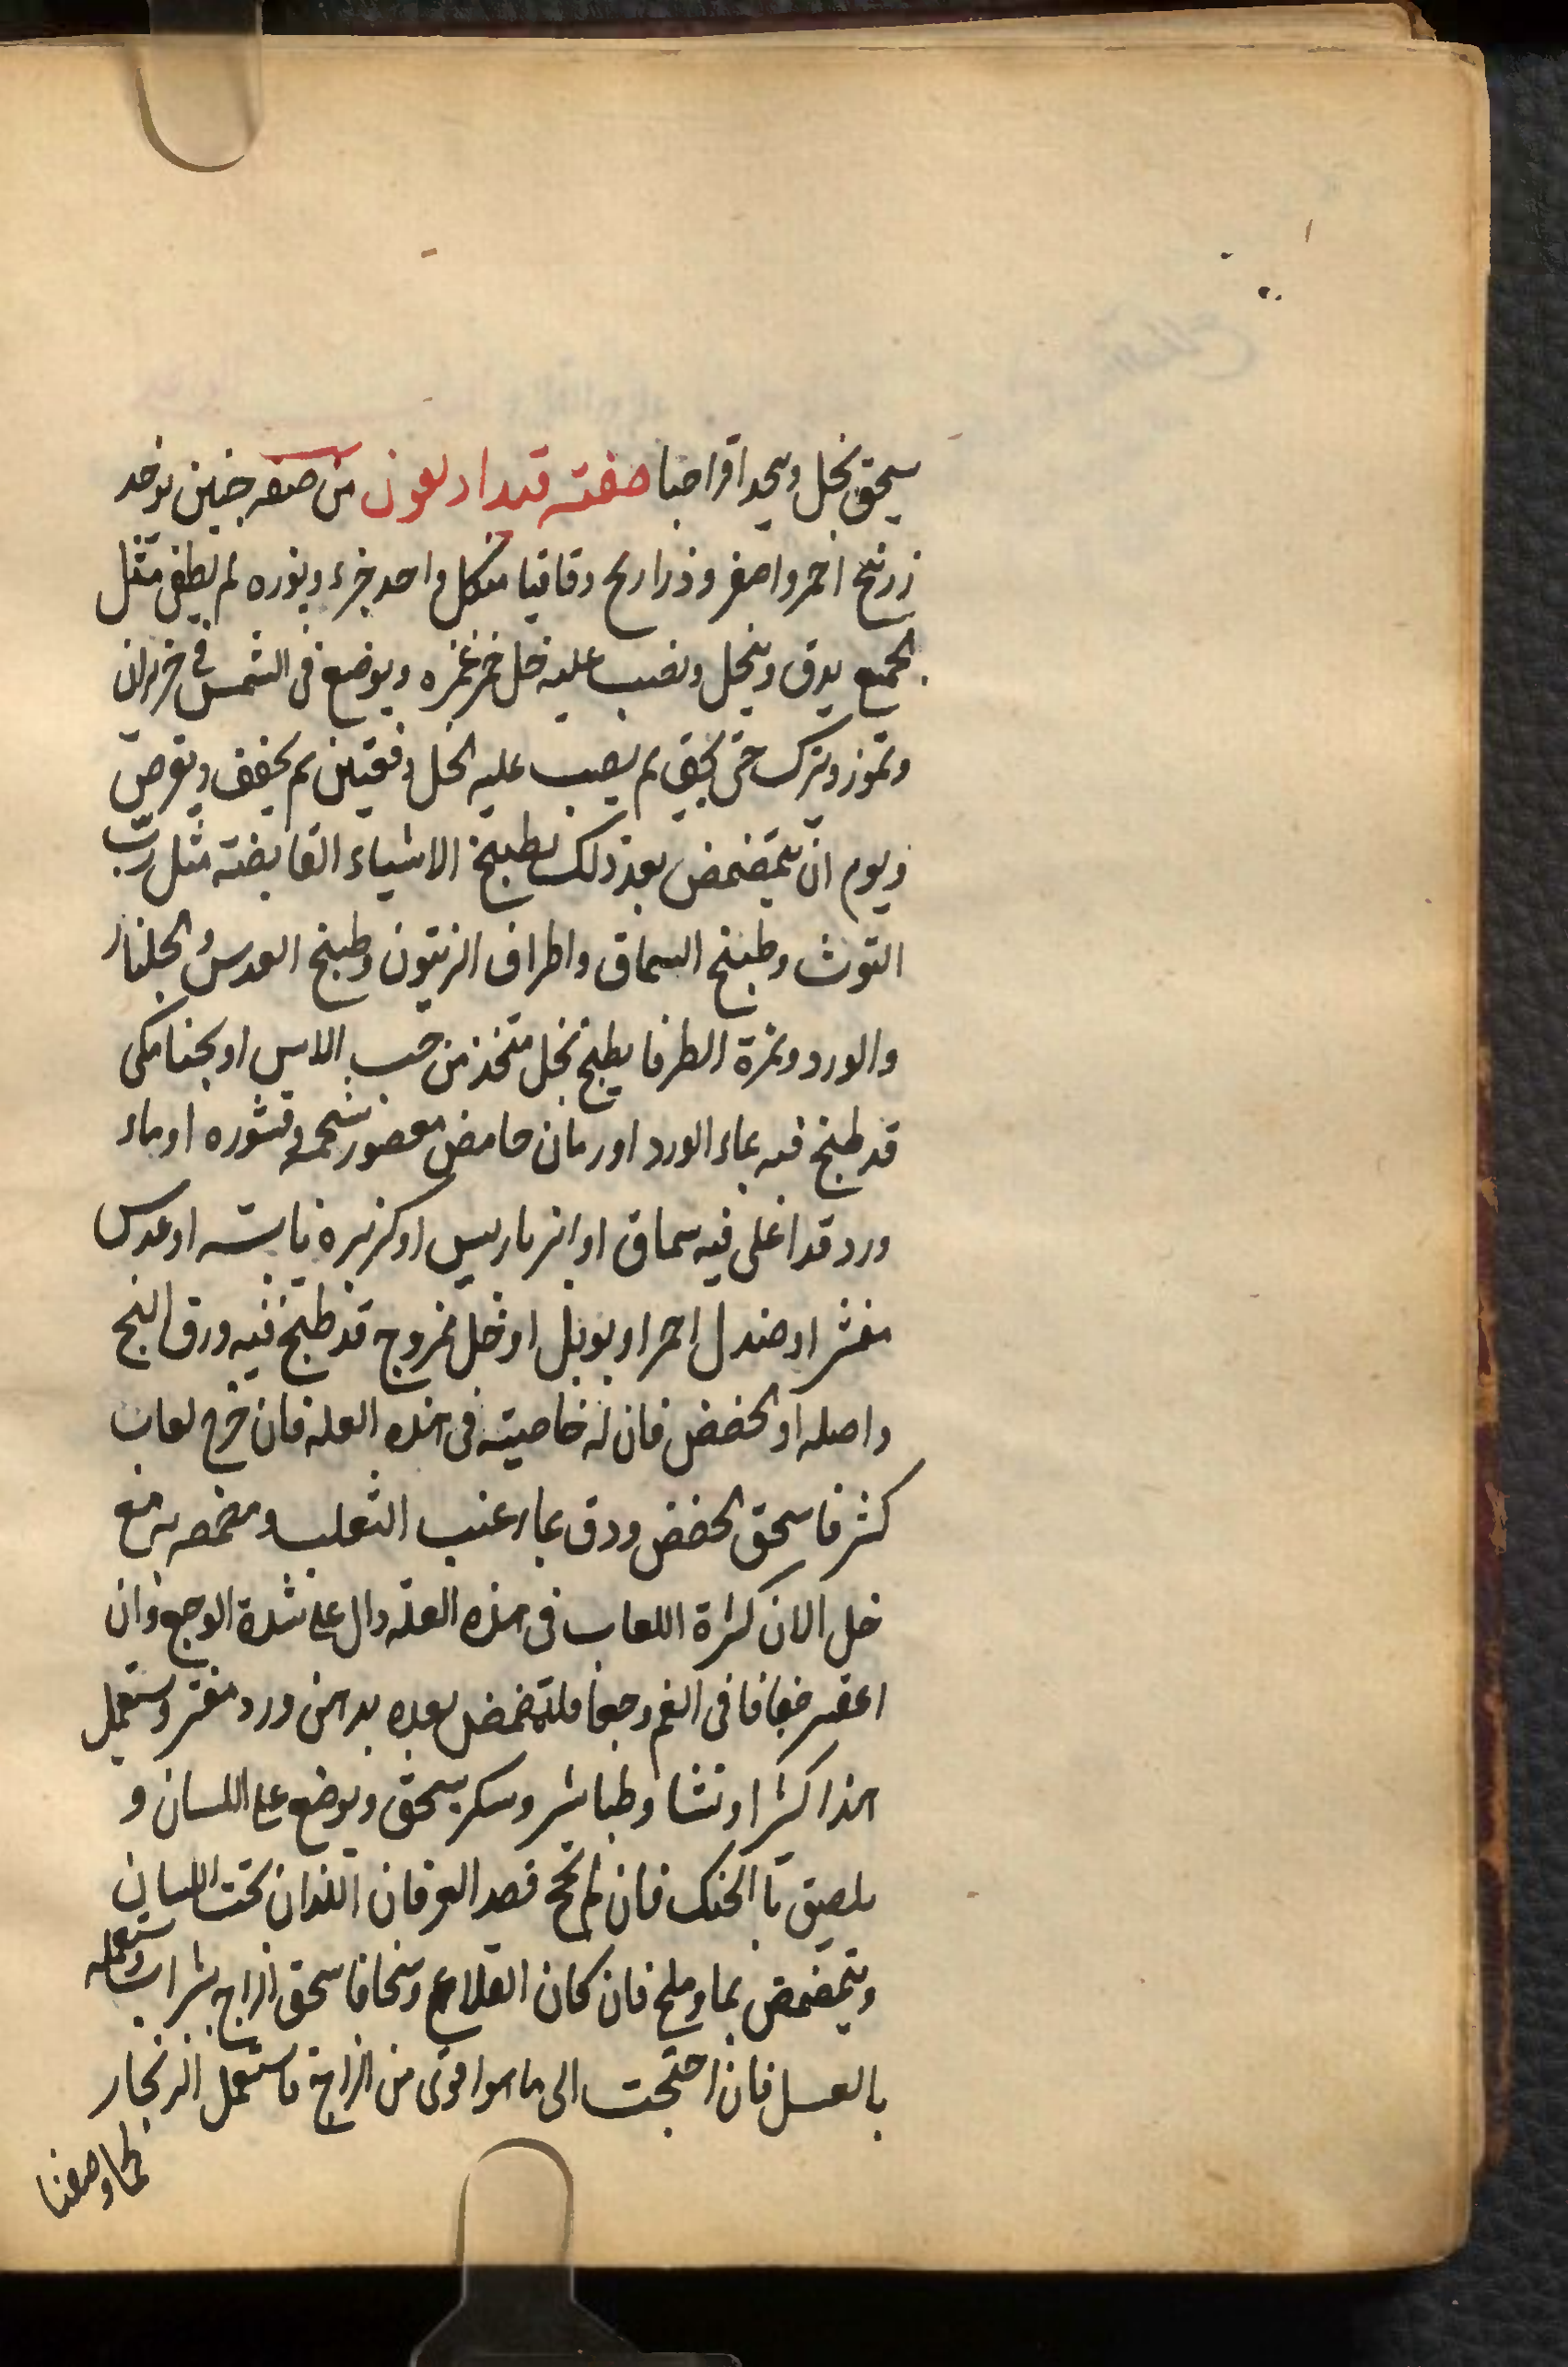 يسحق بخل ويتخذ اقراصا صفته قيدا ديعون من صنعه حنين يوخذ
زرنيخ احمر واصفر وذراريح وقاقيا من كل واحد جزء ونوره لم يطفى مثل
الجميع يدق وينخل ويصب عليه خل خمر غمره ويوضع فى الشمس فى حزيران
وتموز ويترك حتى يجف ثم يصب عليه الخل دفعتين ثم يجفف ويقرص
ويوم ان يتمضمض بعد ذلك بطبيخ الاشياء القابضة مثل ربّ
التوث وطبيخ السماق واطراف الزيتون وطبيخ العدس والجلنار
والورد وثمرة الطرفا يطبخ بخل متخذ من حب الاس او بحنا مكى
قد طبخ فيه بماء الورد او رمان حامض معصور بشحمه وقشوره او ماء
ورد قد اغلى فيه سماق او انبرباريس او كزبره يابسه او عدس
مقشر او صندل احمر او بوبل او خل ممزوج قد طبخ فيه ورق البنج
واصله او الحضض فان له خاصيته فى هذه العلة فان خرج لعاب
كثير فاسحق الحضض ودق بماء عنب الثعلب ومضمضه به مع
خل الان كثرة اللعاب فى هذه العلة دال على شدة الوجع وان
اعقبه جفافا فى الفم وجعا فليتمضمض بعده بدهن ورد مفتر ويستعمل
هذا كثيرا ونشا وطباشير وسكر يسحق ويوضع على اللسان و
يلصق با الحنك فان لم ينجح فصد العرقان اللذان تحت اللسان
ويتمضمض بماء وملح فان كان القلاع وسخا فاسحق الزاج بشراب واستعمله
بالعسل فان احتجت الى ما هو اقوى من الزاج فاستعمل الزنجار
كما وصفنا